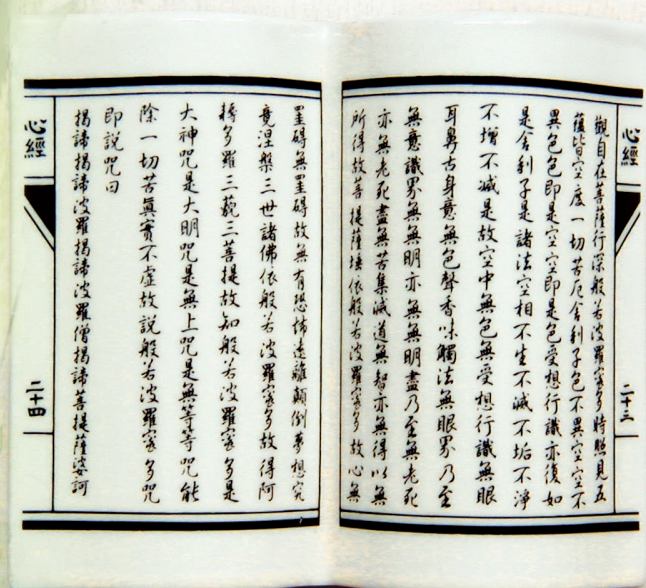 心經
二十三
觀自在菩薩行深般若波羅蜜多時照見五
蘊皆空度一切苦厄舍利子色不異空空不
異色色即是空空即是色受想行識亦復如
是舍利子是諸法空相不生不滅不垢不淨
不增不減是故空中無色無受想行識無眼
耳鼻舌身意無色聲香味觸法無眼界乃至
無意識界無無明亦無無明盡乃至無老死
亦無老死盡無苦集滅道無智亦無得以無
所得故菩提薩埵依般若波羅蜜多故心無
罣礙無罣礙故無有恐怖遠離顛倒夢想究
竟涅槃三世諸佛依般若波羅蜜多故得阿
耨多羅三藐三菩提故知般若波羅蜜多是
大神咒是大明咒是無上咒是無等等咒能
除一切苦真實不虛故說般若波羅蜜多咒
即說咒曰
揭諦揭諦波羅揭諦波羅僧揭諦菩提薩婆訶
心經
二十四